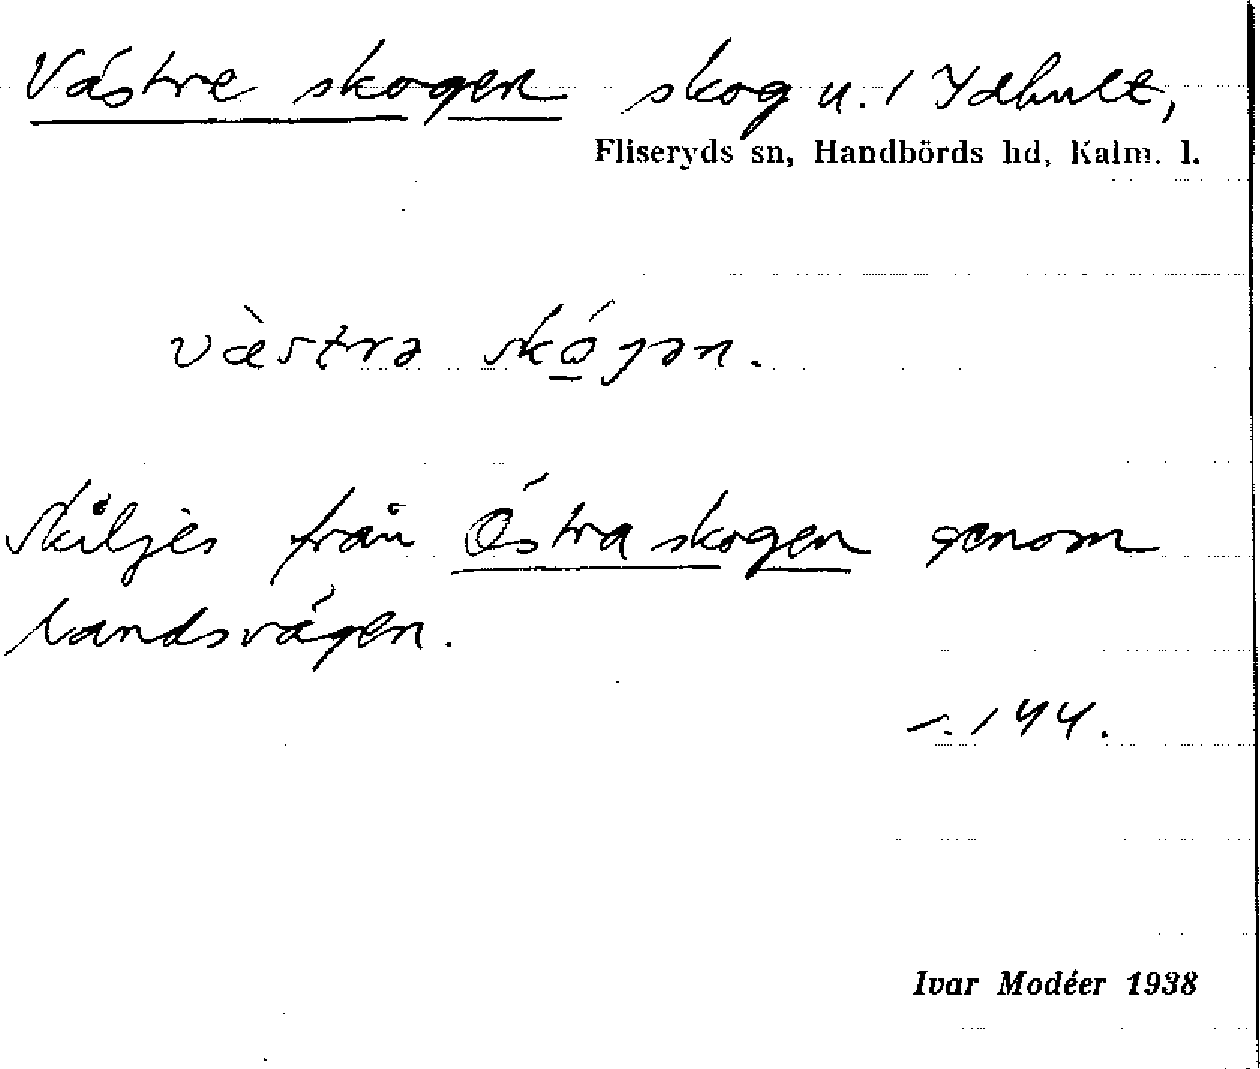 Västra skogen skog u. / Ydhult,
Fliseryds sn, Handbörds hd, Kalm. l.
væ̀stra skó̲gən.
Skiljes från Östra skogen genom
landsvägen.
144.
Ivar Modéer 1938